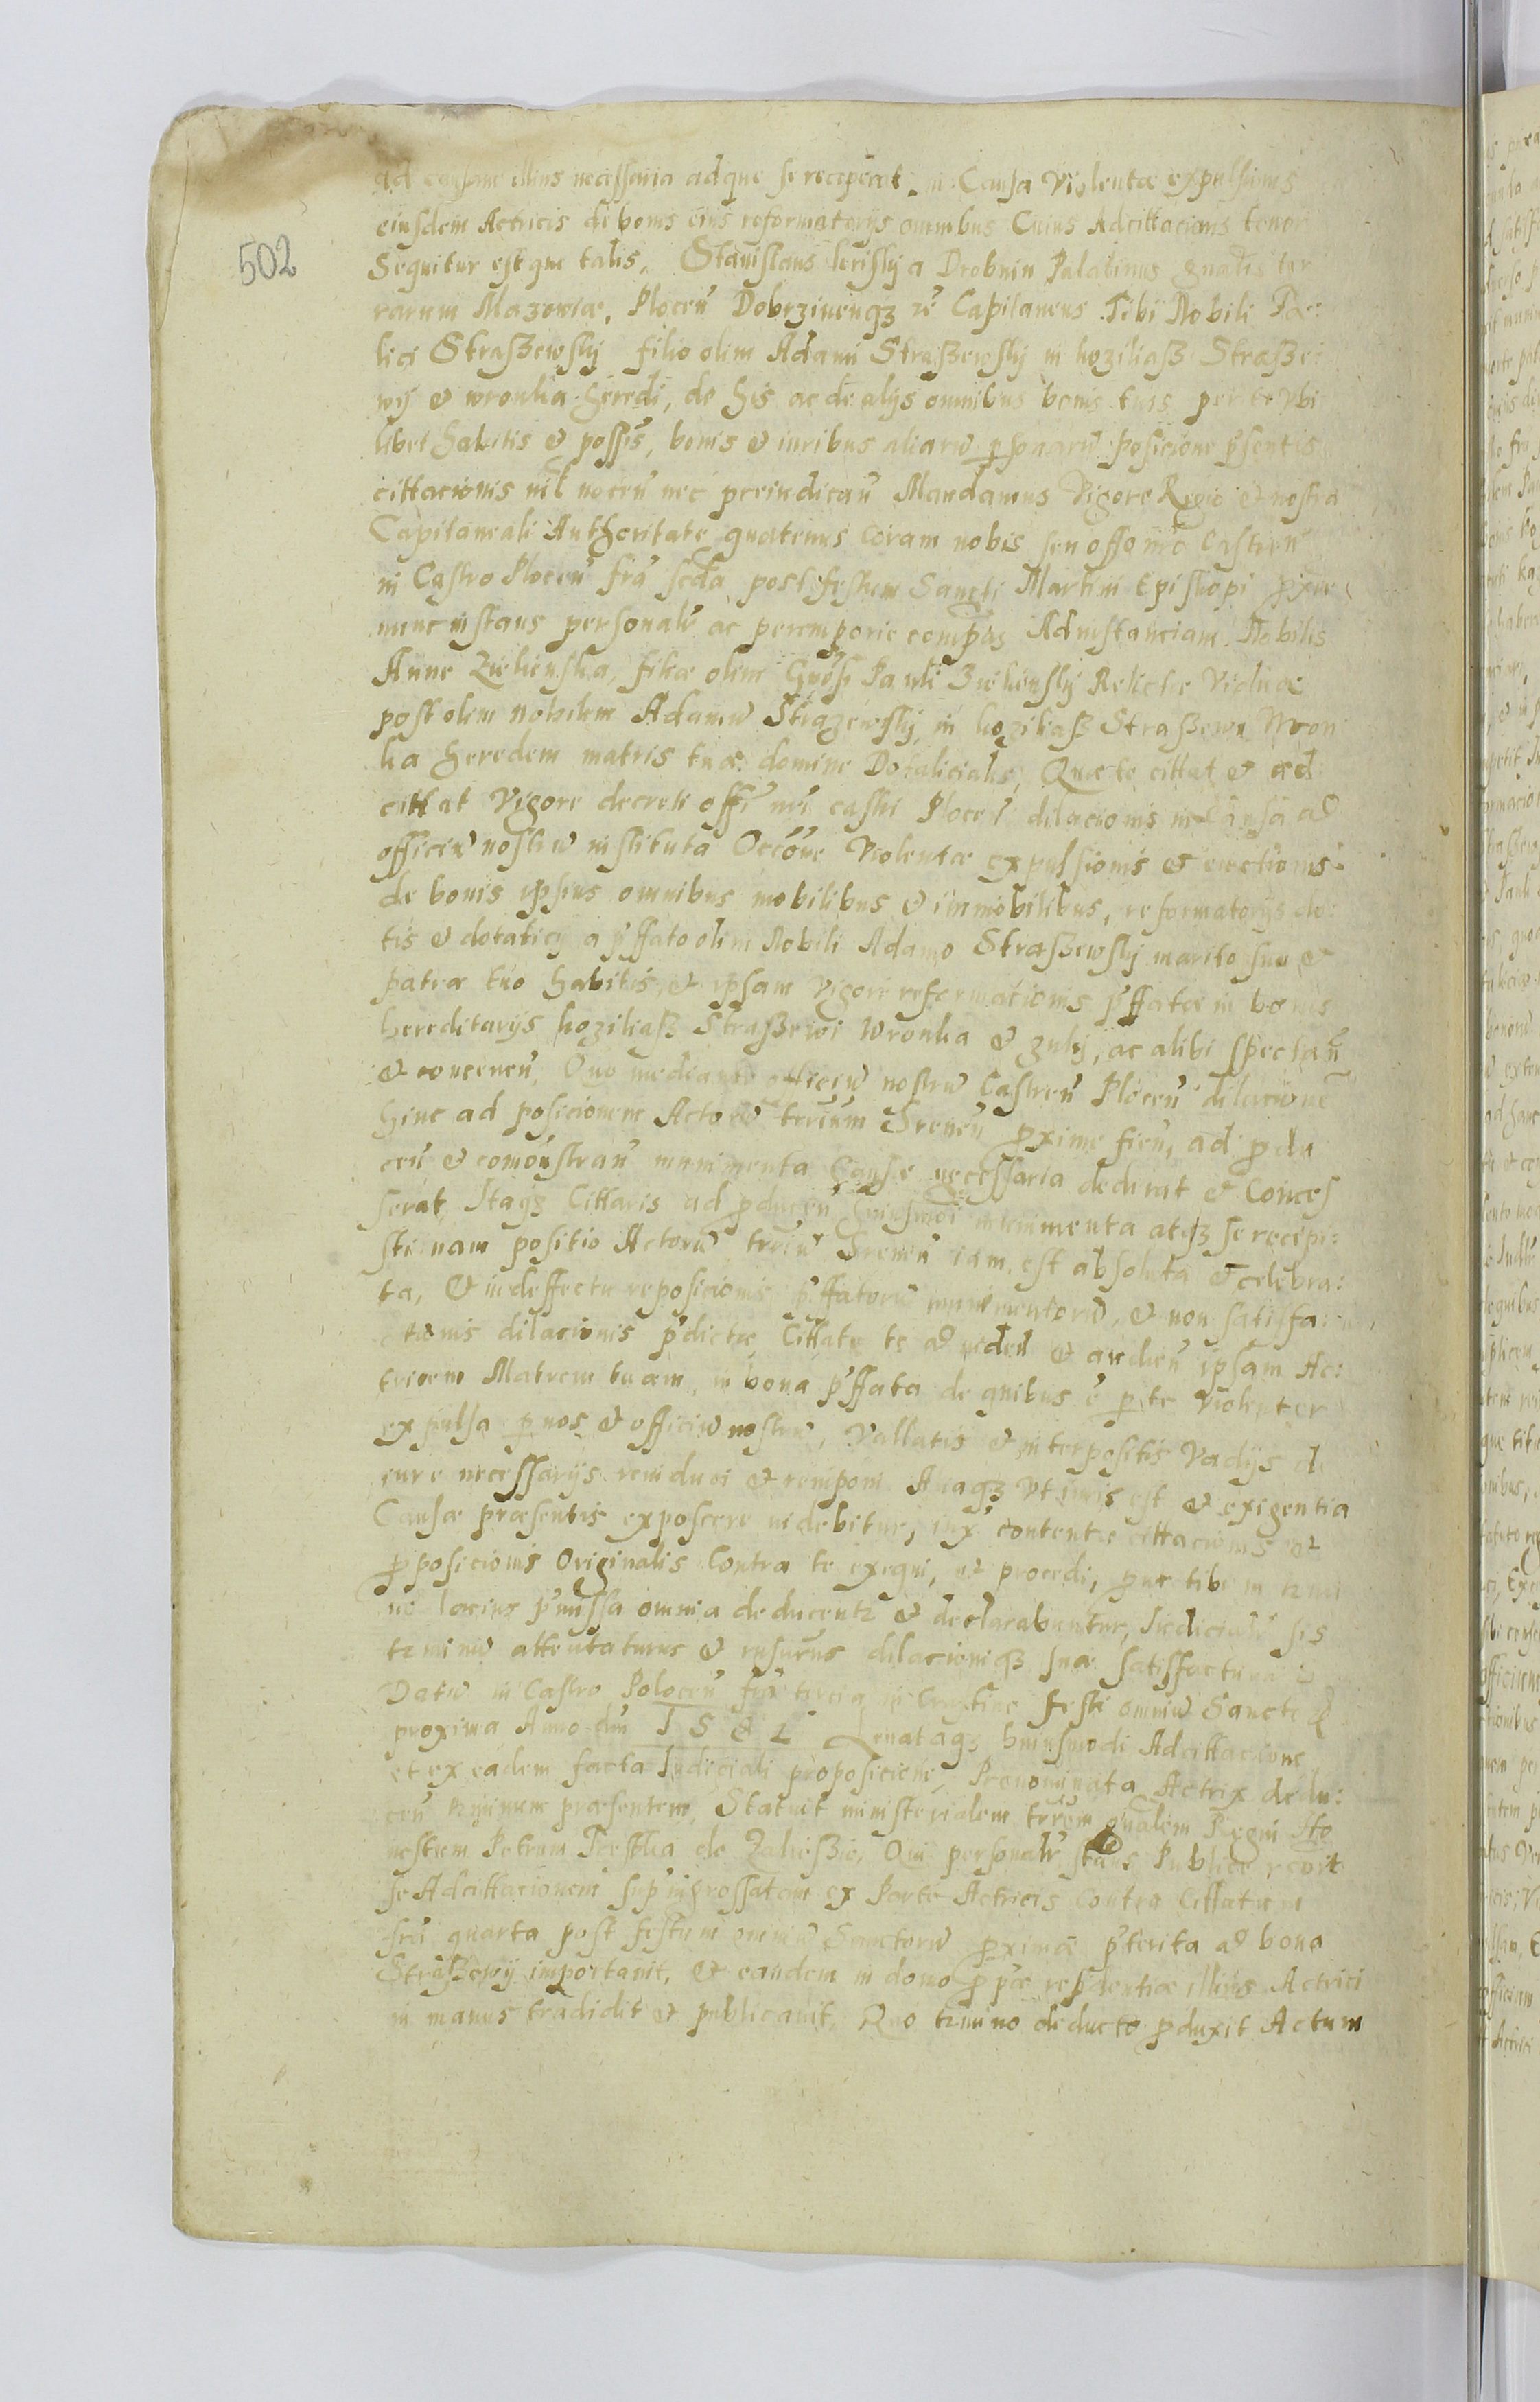 ad causam illius necessaria adque se receperat in Causa Violentæ expulsionis
eiusdem Actricis de bonis eius reformatorijs omnibus Cuius Adcittacionis tenor
502
Sequitur estque talis, Stanislaus Criskij a Drobnin Palatinus gnalis ter
rarum Mazowiæ, Plocen̄ Dobrzinenqȝ zc̄ Capitaneus Tibi Nobili Fæ:
lici Straßewskij filio olim Adami Straßewskij in koziliaß Straße:
wij & wronka heredi, de his ac de alijs omnibus bonis tuis per te vbi
libet habitis & possis̄, bonis & iuribus aliarū psonarū posicione p̄sentis
cittacionis nil nocen̄ nec preiudican̄ Mandamus Vigore Regia & nostra
Capitaneali Authoritate quatenus coram nobis seu offo nr̄o Castren̄
in Castro Plocen̄ fr̄a scda post festum Sancti Martini Episkopi pxime
nunc instans personalr̄ ac peremporie compās Ad instanciam Nobilis
Anne Zielienska, filiæ olim Gn̄osi Pauli Zielienskij Relictæ Viduæ
post olim nobilem Adamū Strazewskij in koziliaß Straßewi Wron
ka heredem matris tuæ domine Dotalicialis, Quæ te cittat & ad
cittat Vigore decreti offi nr̄i castri Plocen̄ dilacionis in Causa ad
officiū nostrū instituta Occōne Violentæ expulsionis & eiectionis
de bonis ipsius omnibus mobilibus & immobilibus, reformatorijs do:
tis & dotalicij a p̄ffato olim Nobili Adamo Straßewskij marito suo &
patre tuo habitis, & ipsam Vigore reformationis p̄ffatæ in bonis
hereditarijs koziliaß Straßewi Wronka & gulij, ac alibi spectan̄
& concernen̄, Quo mediante officiū nostrū Castren̄ Plocen̄ dilacione
hinc ad posicionem Actorū terrium Srenen̄ pxime fien̄, ad pdu
cen̄ & comōnstran̄ munimenta Causæ necessaria dederat & Conces
serat, Itaqȝ Cittaris ad pducen̄ huiusmodi munimenta atqȝ se recepi:
sti nam positio Actorū terriū Srenen̄ iam est absoluta & celebra:
ta, & in deffectu reposicionis p̄ffatorū munimentorū, & non satisfa:
ctionis dilacionis p̄dictæ, Cittat te ad viden̄ & audien̄ ipsam Ac:
tricem Matrem tuam in bona p̄ffata de quibus ē p te violenter
expulsa p nos & officiū nostrū, Vallatis & interpositis Vadijs de
iure necessarijs reinduci & reimponi Aliaqȝ vt iuris est & exigentia
Causæ præsentis exposcere videbitur, iux̄ contentæ cittacionis et
pposicionis Originalis Contra te exequi, et procedi, put tibi in tmi
no lacius p̄missa omnia deducentr & declarabuntur, Iudicialr̄ sis
trminū attentaturus & rusurus dilacioniqȝ suæ satisfacturus
Datū in Castro Polocen̄ fr̄a tercia in Crastino Festi omniū Sanctorū
proxima Anno dn̄i 1582 Leuataqȝ huiusmodi Adcittatione
et ex eadem facta Iudiciali proposicione, Prenominata Actrix dedu:
cen̄ trminum præsentem, Statuit ministerialem trrem gn̄alem Regni Ho
nestum Petrum Peszka de Zalieszie, Qui personalr̄ stans Publice recōit
se Adcittacionem sup̄ ingrossatam ex Parte Actricis contra Cittatum
fr̄a quarta post festum omniū Sanctorū pximæ p̄terita ad bona
Straßewij importauit, & eandem in domo ppæ residentiæ illius Actrici
in manus tradidit & publicauit, Quo trmino deducto pduxit Actum